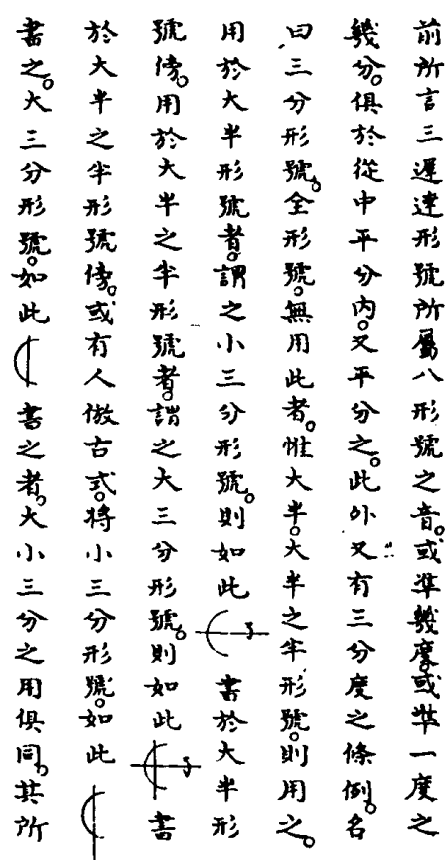 前所言三遲速形號所屬八形號之音。或準幾度。或準一度之
幾分。俱於從中平分內。又平分之。此外又有三分度之條例。名
曰三分形號。全形號。無用此者。惟大半。大半之半形號。則用之。
用於大半形號者。謂之小三分形號。則如此 書於大半形
號傍。用於大半之半形號者。謂之大三分形號。則如此 書
於大半之半形號傍。或有人倣古式。將小三分形號。如此
書之。大三分形號。如此 書之者。大小三分之用俱同。其所